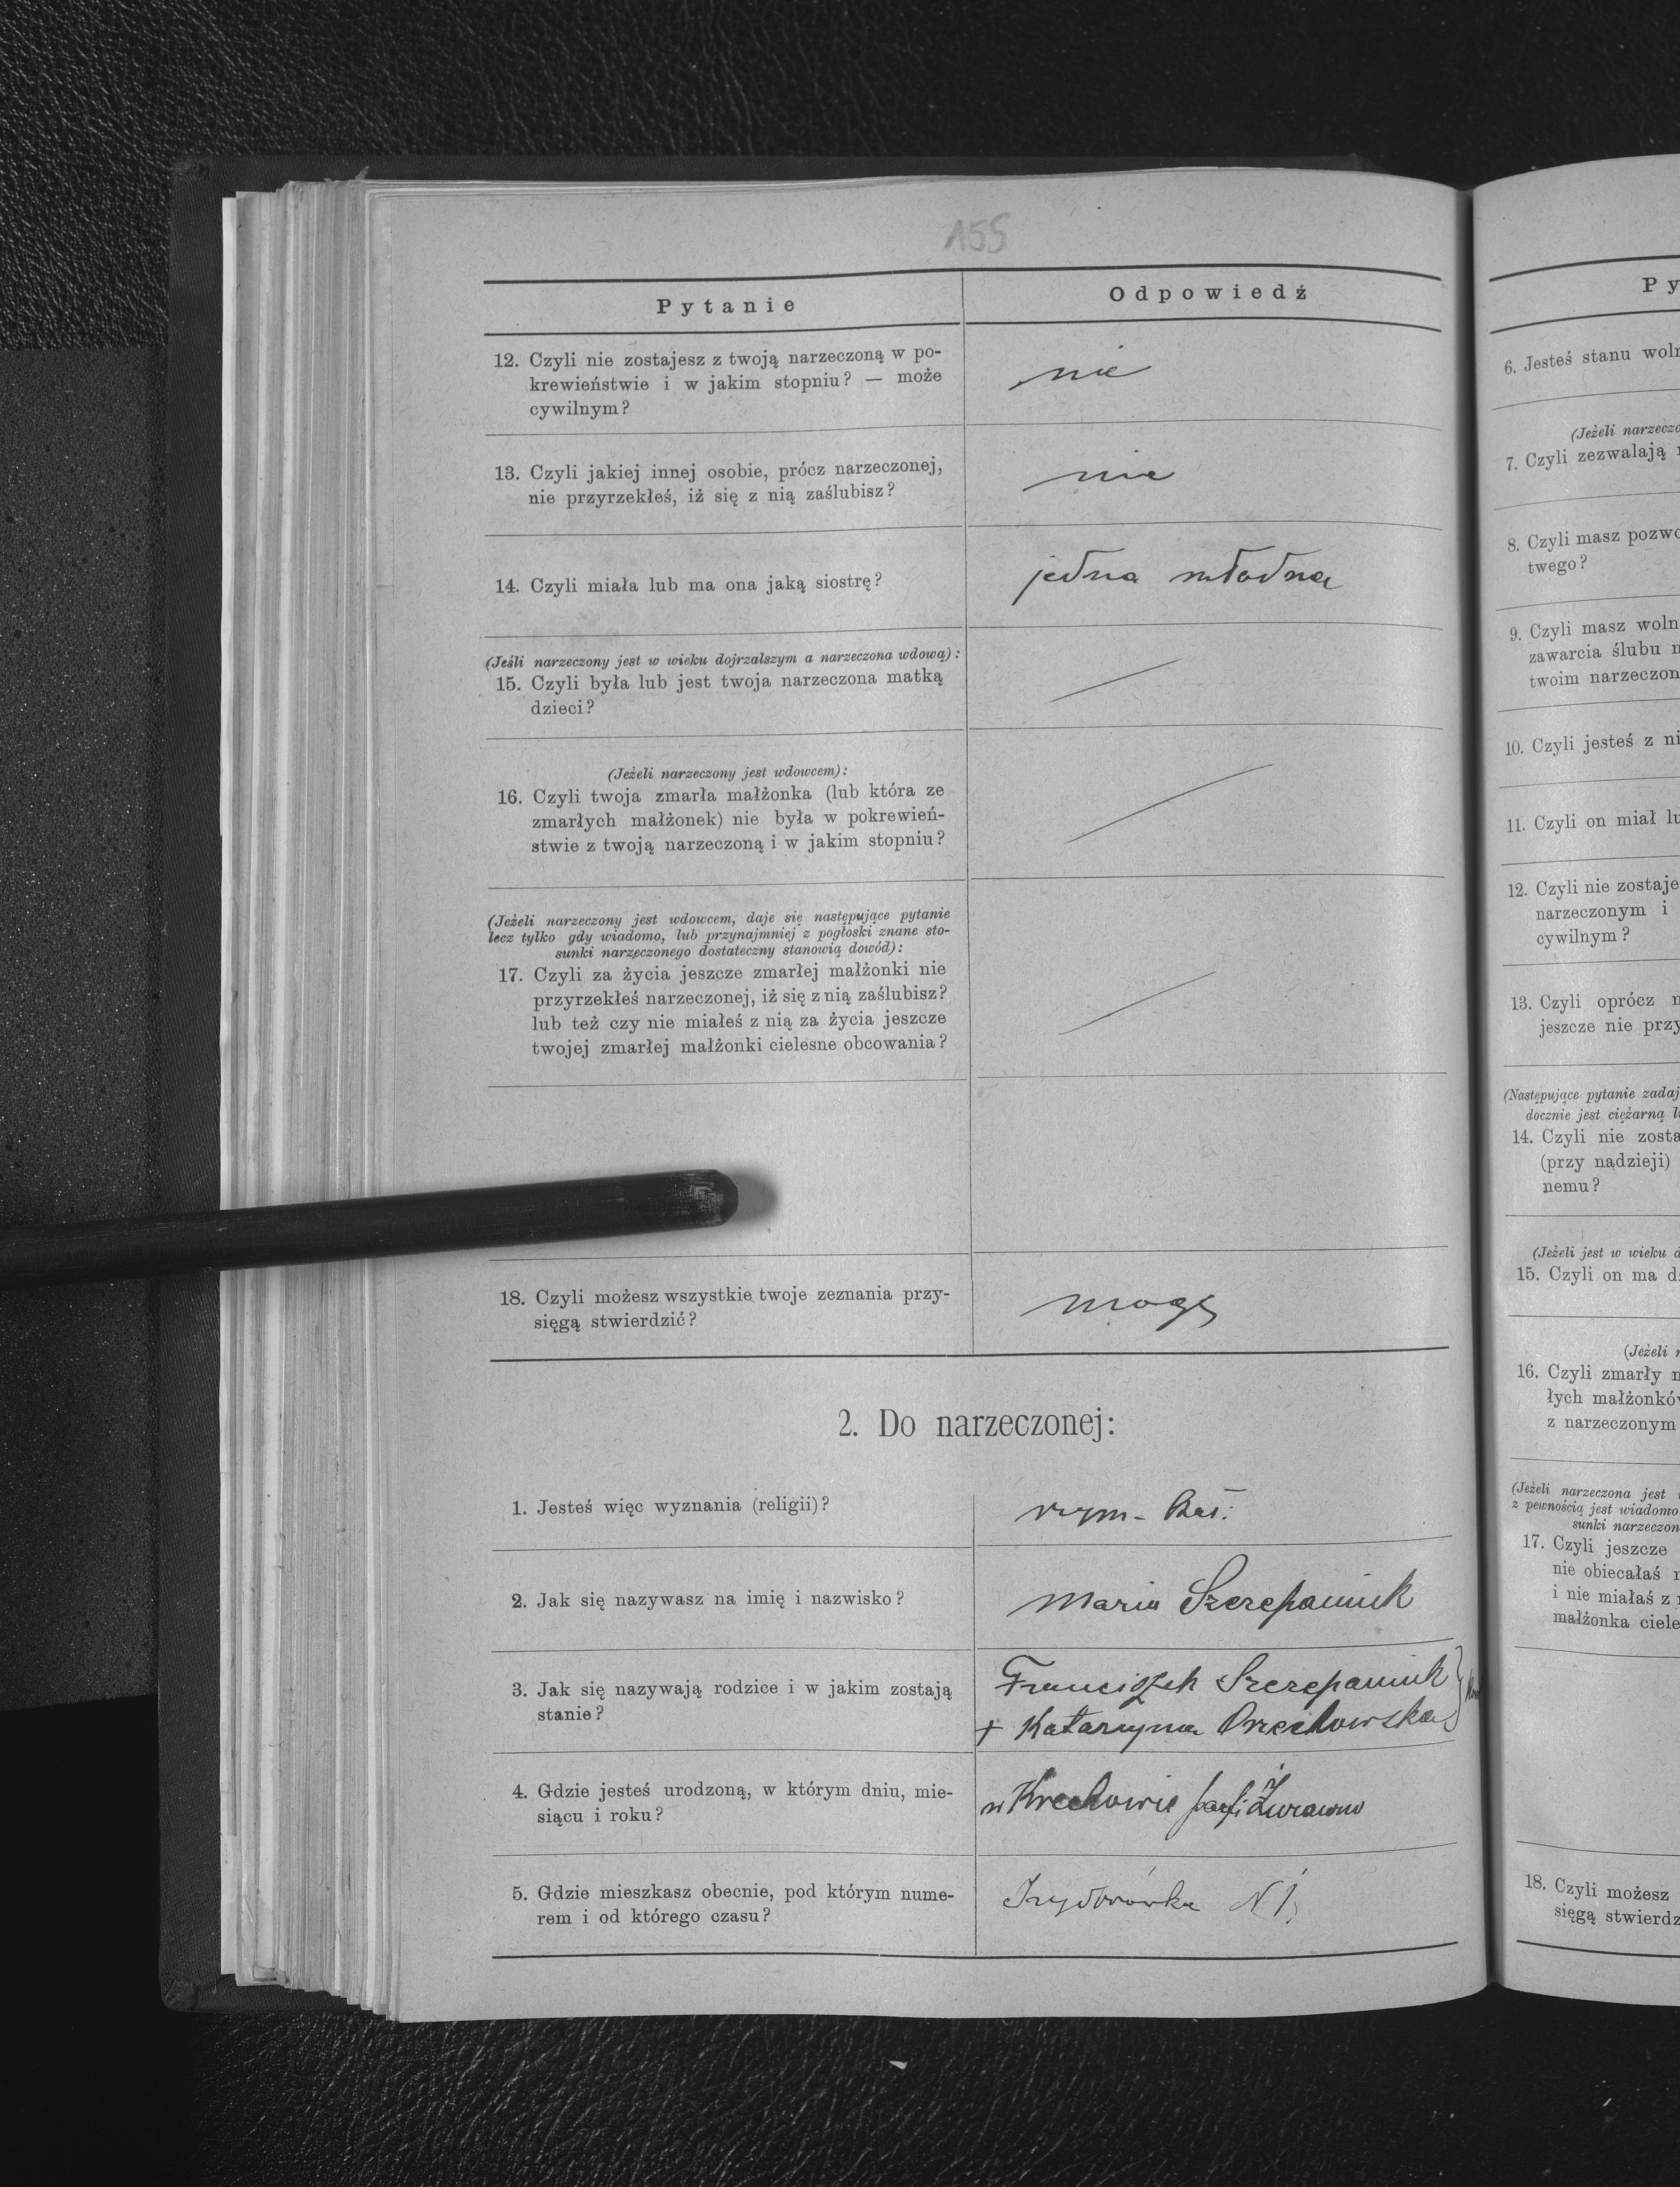 155
Pytanie
Odpowiedź
12. Czyli nie zostajesz z twoją narzeczoną w po-
krewieństwie i w jakim stopniu? — może
cywilnym?
nie
13. Czyli jakiej innej osobie, prócz narzeczonej,
nie przyrzekłeś, iż się z nią zaślubisz?
nie
14. Czyli miała lub ma ona jaką siostrę?
jedna młodna
(Jeśli narzeczony jest w wieku dojrzalszym a narzeczona wdową):
15. Czyli była lub jest twoja narzeczona matką
dzieci?
(Jeżeli narzeczony jest wdowcem):
16. Czyli twoja zmarła małżonka (lub która ze
zmarłych małżonek) nie była w pokrewień-
stwie z twoją narzeczoną i w jakim stopniu?
(Jeżeli narzeczony jest wdowcem, daje się następujące pytanie
lecz tylko gdy wiadomo, lub przynajmniej z pogłoski znane sto-
sunki narzeczonego dostateczny stanowią dowód):
17. Czyli za życia jeszcze zmarłej małżonki nie
przyrzekłeś narzeczonej, iż się z nią zaślubisz?
lub też czy nie miałeś z nią za życia jeszcze
twojej zmarłej małżonki cielesne obcowania?
18. Czyli możesz wszystkie twoje zeznania przy-
sięgą stwierdzić?
mogę
2. Do narzeczonej:
1. Jesteś więc wyznania (religii)?
rzym- kat:
2. Jak się nazywasz na imię i nazwisko?
Maria Szczepaniuk
3. Jak się nazywają rodzice i w jakim zostają
stanie?
Franciszek Szczepaniuk
+ Katarzyna Orzechowska
4. Gdzie jesteś urodzoną, w którym dniu, mie-
siącu i roku?
w Krechowie parfi Żurawno
5. Gdzie mieszkasz obecnie, pod którym nume-
rem i od którego czasu?
Izydorówka N 1
Py
6. Jesteś stanu woln
(Jeżeli narzeczo
7. Czyli zezwalają
8. Czyli masz pozwo
twego?
9. Czyli masz woln
zawarcia ślubu n
twoim narzeczon
10. Czyli jesteś z ni
11. Czyli on miał lu
12. Czyli nie zostaje
narzeczonym i
cywilnym?
13. Czyli oprócz n
jeszcze nie przy
(Następujące pytanie zadaj
docznie jest ciężarną l
14. Czyli nie zosta
(przy nadzieji)
nemu?
(Jeżeli jest w wieku d
15. Czyli on ma d
(Jeżeli n
16. Czyli zmarły m
łych małżonków
z narzeczonym
(Jeżeli narzeczona jest
z pewnością jest wiadomo
sunki narzeczon
17. Czyli jeszcze
nie obiecałaś
i nie miałaś z
małżonka ciele
18. Czyli możesz
sięgą stwierdz